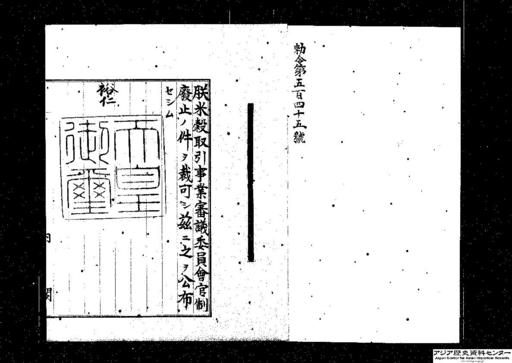 勅令第五百四十五號
朕米穀取引事業審議委員會官制
廢止ノ件ヲ裁可シ茲ニ之ヲ公布
セシム
裕仁
天皇
御璽
内閣
アジア歴史資料センター
Japan Center for Asian Historical Records